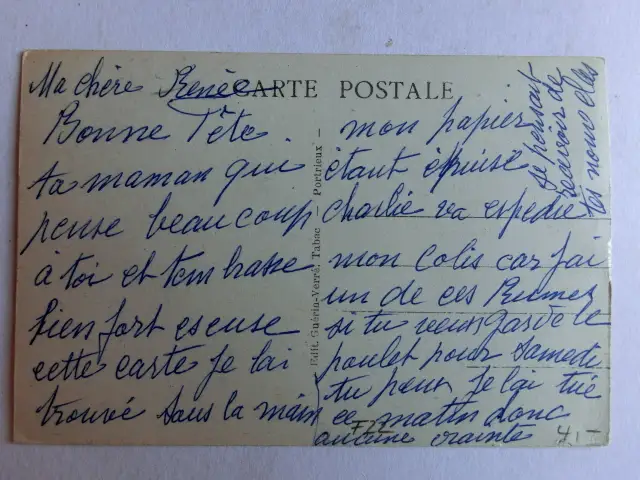 Ma chère Renée
CARTE POSTALE
Bonne Fête.
ta maman qui
pense beaucoup
à toi et t'embrasse
bien fort escuse
cette carte je lai
trouvé sous la main
Edit. Guérin-Verré, Tabac — Portrieux —
mon papier
étant épuisé
Charlie va espedie
mon Colis car j'ai
un de ces Rumes
si tu veux garde le
poulet pour samedi
tu peux je lai tué
ce matin donc
aucune crainte
Je pensait
recevoir de
tes nouvelles
4.—